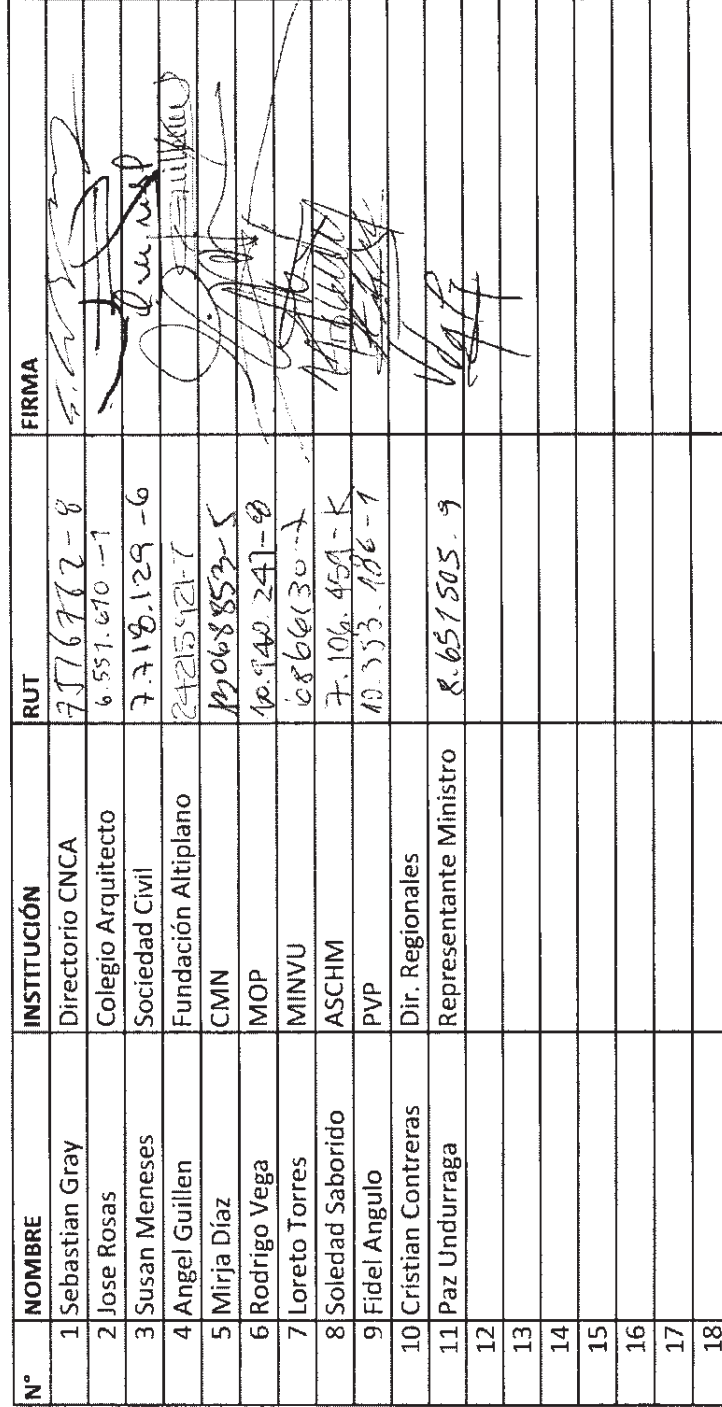 N° NOMBRE INSTITUCIÓN RUT FIRMA
1 Sebastian Gray Directorio CNCA
2 Jose Rosas Colegio Arquitecto 6.551.610-1
3 Susan Meneses Sociedad Civil 7.718.129-6
4 Angel Guillen Fundación Altiplano
5 Mirja Díaz CMN 13068853-5
6 Rodrigo Vega MOP 10.940.241-8
7 Loreto Torres MINVU
8 Soledad Saborido ASCHM 7.106.459-K
9 Fidel Angulo PVP 10.353.186-1
10 Cristian Contreras Dir. Regionales
11 Paz Undurraga Representante Ministro 8.651505.9
12
13
14
15
16
17
18